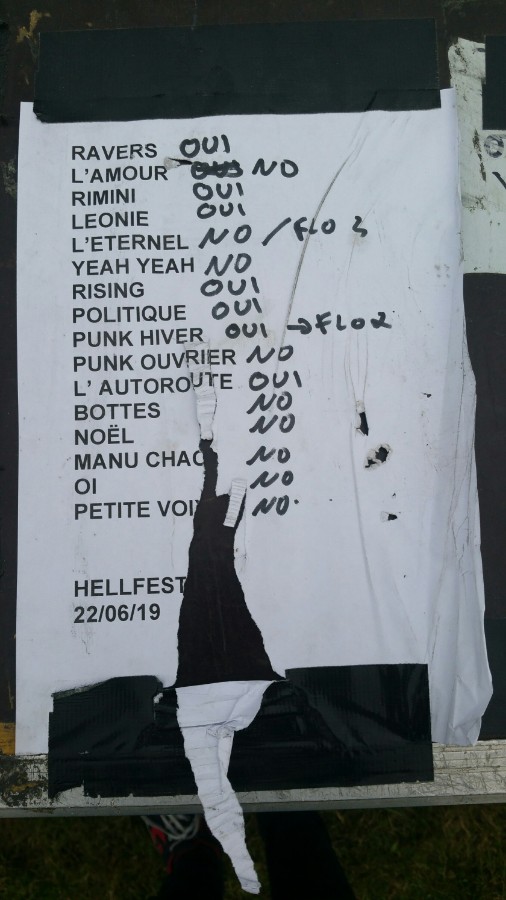 RAVERS OUI
L'AMOUR OUI NO
RIMINI OUI
LEONIE OUI
L'ETERNEL NO / FLO 3
YEAH YEAH NO
RISING OUI
POLITIQUE OUI
PUNK HIVER OUI → FLO 2
PUNK OUVRIER NO
L' AUTOROUTE OUI
BOTTES NO
NOËL NO
MANU CHAO NO
OI NO
PETITE VOIX NO.
HELLFEST
22/06/19